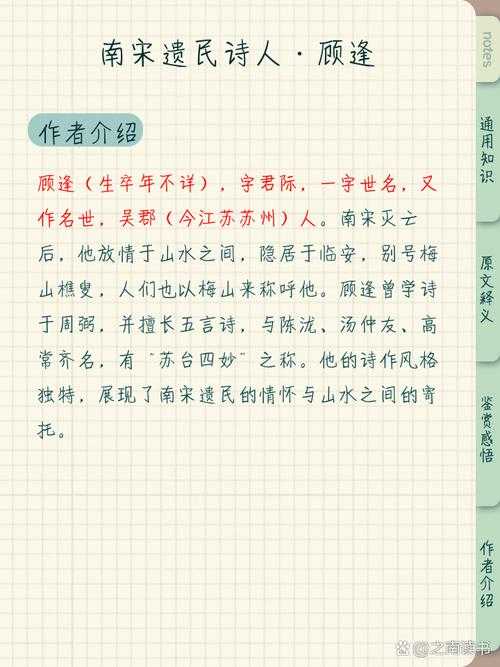 南宋遗民诗人·顾逢
notes
作者介绍
顾逢（生卒年不详），字君际，一字世名，又
作名世，吴郡（今江苏苏州）人。南宋灭亡
后，他放情于山水之间，隐居于临安，别号梅
山樵叟，人们也以梅山来称呼他。顾逢曾学诗
于周弼，并擅长五言诗，与陈泷、汤仲友、高
常齐名，有“苏台四妙”之称。他的诗作风格
独特，展现了南宋遗民的情怀与山水之间的寄
托。
通用知识
原文释义
鉴赏感悟
作者介绍
@之南读书